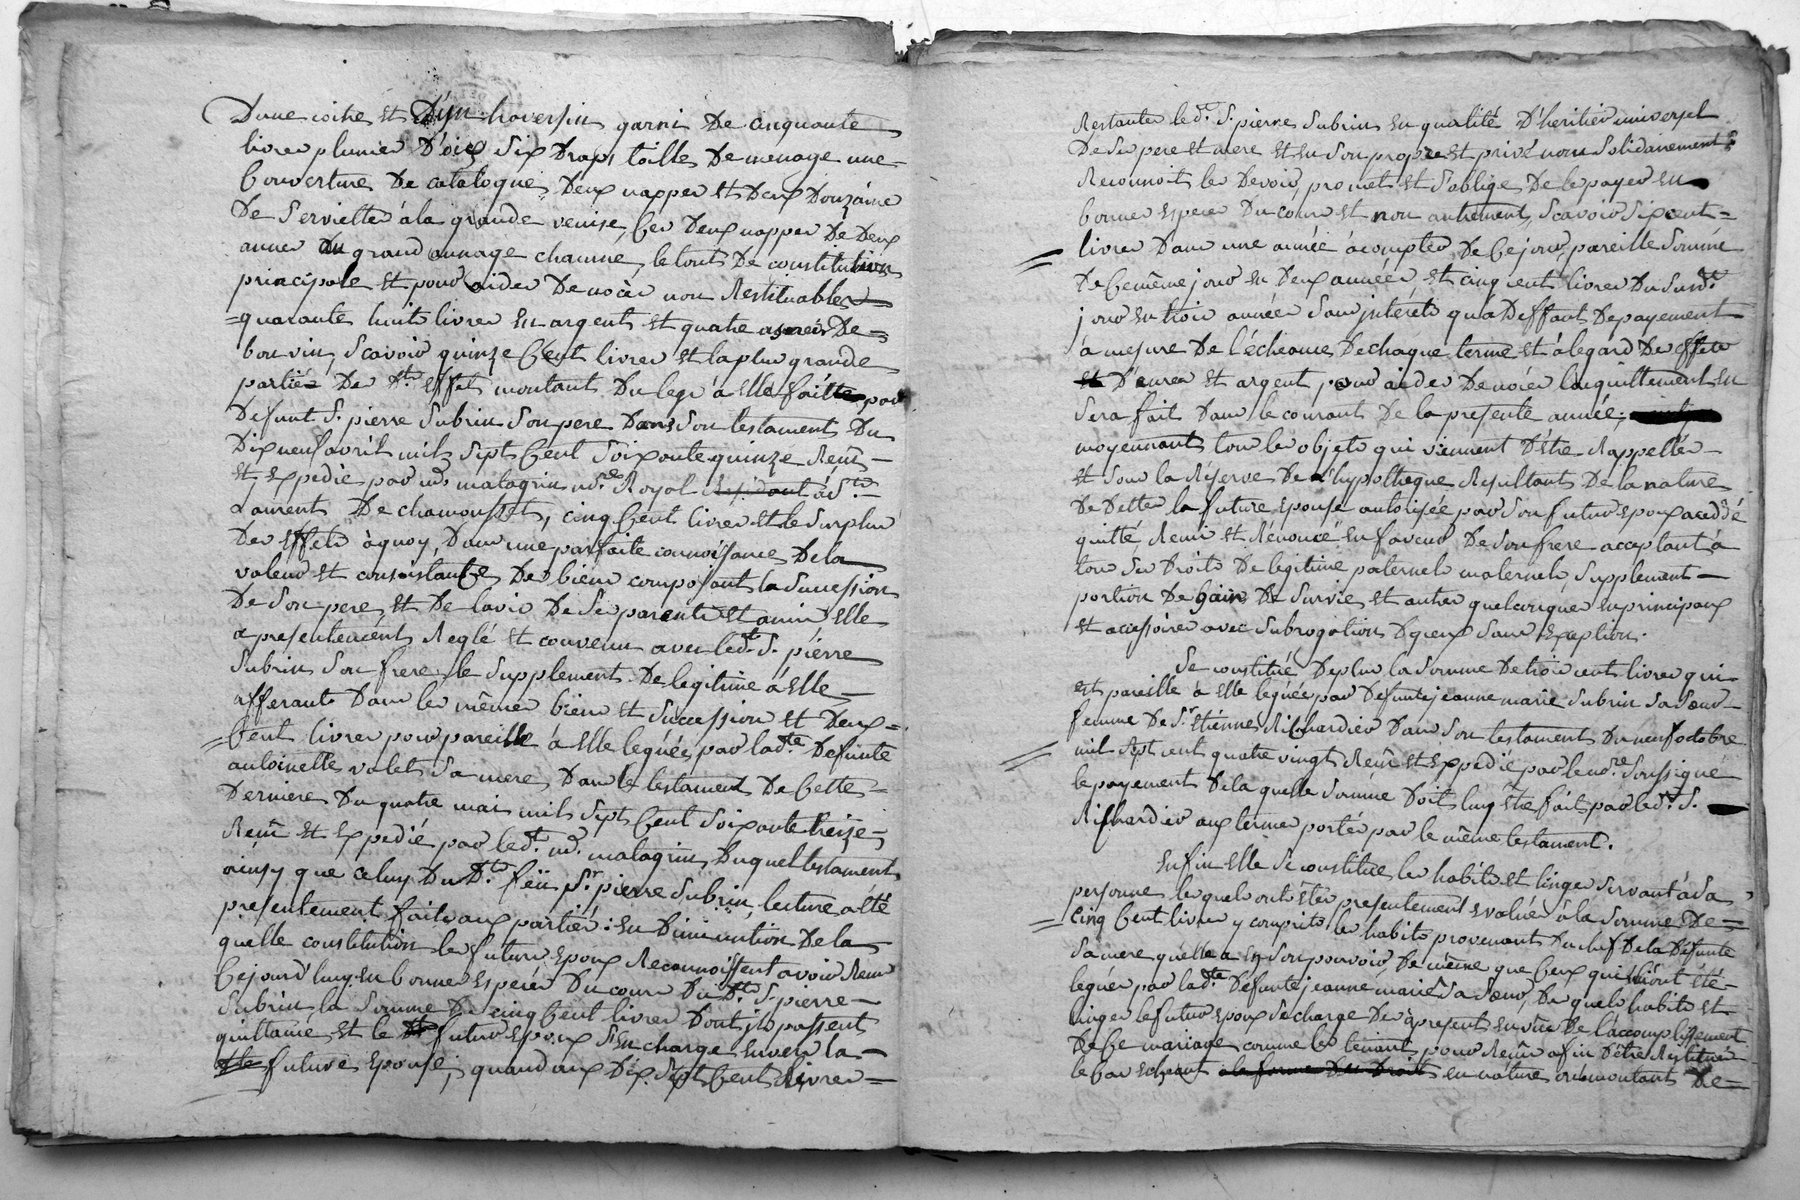 D'une coitre et D'un traversin garni De cinquante
livres plumes D'oie, Six Draps toille De menage une
Couverture De catalogue, Deux nappes et Deux Douzaine
De Serviettes à la grande venise, Ces Deux nappes De Deux
aunes du grand aunage chacune, le tout De constitution
principale et pour aider De noces non Restituables
quarante huit livres en argent et quatre asnées De
bon vin, Scavoir quinze Cent livres et la plus grande
partie De dts. effets montant Du legs à elle faitte par
Defunt Sr. pierre Subrin Son pere Dans Son testament Du
Dix neuf avril mil Sept Cent Soixante quinze Reçu
et expedié par me. malagrin nore. Royal Résidant à St.
Laurent De chamousset, cinq Cent livres et le Surplus
Des effets à quoy, Dans une parfaite connoissance De la
valeur et consistance De biens composant la Succession
De Son pere, et De lavis De Ses parents et amis elle
a presentement Reglé et convenu avec led. Sr. pierre
Subrin Son frere le Supplement De legitime à elle
afferante Dans les mêmes biens et Succession et Deux
Cent livres pour pareille à elle leguée par ladte. Defunte
antoinette valet Sa mere, Dans le testament De Cette
Derniere Du quatre mai mil Sept Cent Soixante treize
Reçu et expedié par ledt. me. malagrin, Duquel testament
ainsy que celuy Du Dt. feü Sr. pierre Subrin, lecture a été
presentement faite aux parties: en Diminution De la
quelle constitution les futurs epoux Reconnoissent avoir Reçu
Cejourd'huy en bonnes espèces Du cours Du Dt. Sr. pierre
Subrin la Somme De cinq Cent livres Dont ils passent
quittance et le futur epoux S'en charge envers la
future epouse, quand aux Dix Sept Cent livres
Restantes led. Sr. pierre Subrin en qualité D'heritier universel
De Ses pere et mere et en Son propre et privé nom Solidairement
Reconnoit les Devoir, promet et S'oblige De les payer en
bonnes especes Du cours et non autrement, Scavoir Six cent
livres Dans une année à compter De Ce jour, pareille Somme
De Ce même jour en Deux années et cinq cent livres Du Susdt.
jour en trois années Sans interêts qu'à Deffaut De payement
à mesure De l'écheance De chaque terme et à l'egard Des effets
et D'enrés et argent pour aider De noces l'acquittement en
Sera fait Dans le courant De la presente année;
moyennant tous les objets qui viennent D'être Rappellés
et Sous la Réserve De l'hypotheque Resultant De la nature
De Dettes la future epouse autorisée par Son futur epoux a cedé
quitté Remis et Rénoncé en faveur De Son frere acceptant à
tous Ses Droits De legitime paternels maternels, Supplement
portion De gain De Survie et autres quelconques en principaux
et accessoires avec Subrogation D'yceux Sans exception.
Se constitue De plus la Somme De trois cent livres qui
est pareille à elle leguée par Defunte jeanne marie Subrin Sa Sœur
femme De Sr. etienne Richardier Dans Son testament Du neuf octobre
mil Sept cent quatre vingt Reçu et expedié par le nore. Soussigné
le payement De la quelle Somme Doit luy être fait par ledt. Sr.
Richardier aux termes portés par le même testament.
Enfin elle Se constitue les habits et linges Servant à Sa
personne lesquels ont étés presentement evalués à la Somme De
cinq Cent livres y compris les habits provenants Du chef De la Defunte
Sa mere quelle a en Son pouvoir, De même que Ceux qui lui ont été
legués par ladte. Defunte jeanne marie Sa Sœur, Des quels habits et
linges le futur epoux Se charge Dès à present en vüe De l'accomplissement
De Ce mariage comme les tenant pour Reçus afin D'être Restitués
le Cas echeant à la forme Du Droit en nature ou le montant De